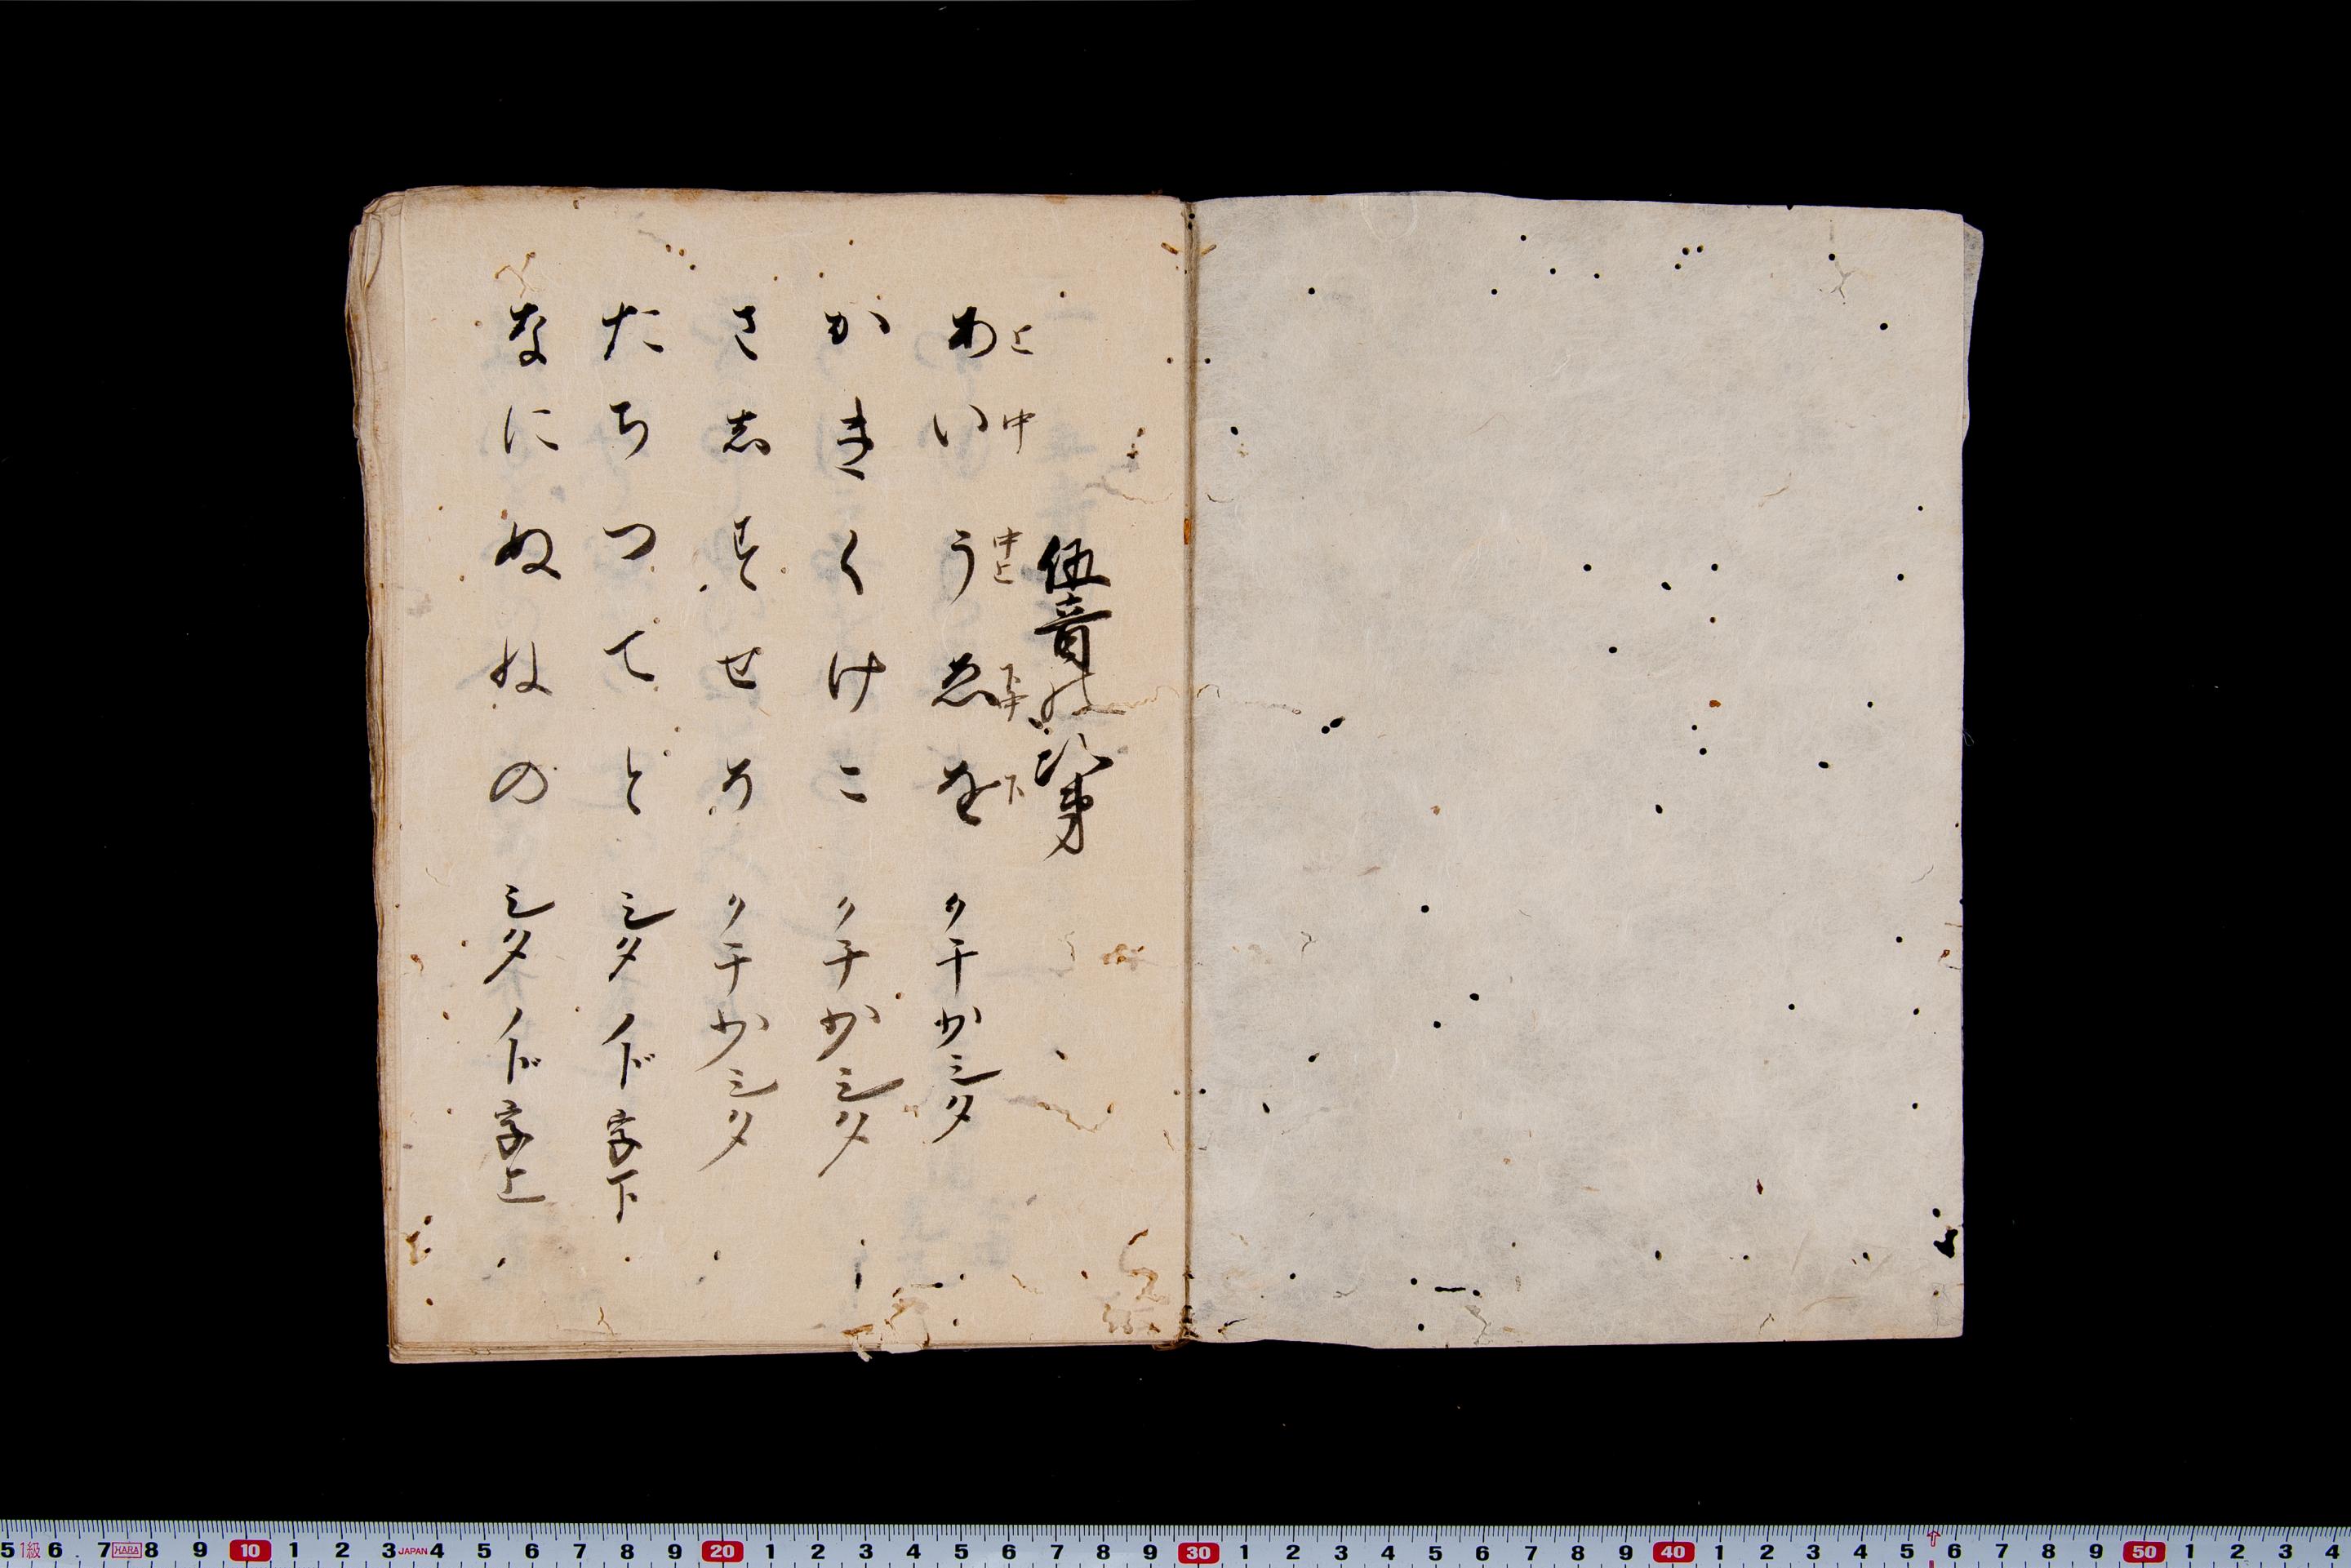 伍音の次第
上 中 中上 下中 下
あ い う ゑ を クチかシタ
か き く け こ クチかシタ
さ 志 す せ そ クチかシタ
た ち つ て と シタノド字下
な に ぬ ね の シタノド字上
5 1級 6 7 HARA 8 9 10 1 2 3 JAPAN 4 5 6 7 8 9 20 1 2 3 4 5 6 7 8 9 30 1 2 3 4 5 6 7 8 9 40 1 2 3 4 5 6 7 8 9 50 1 2 3 4